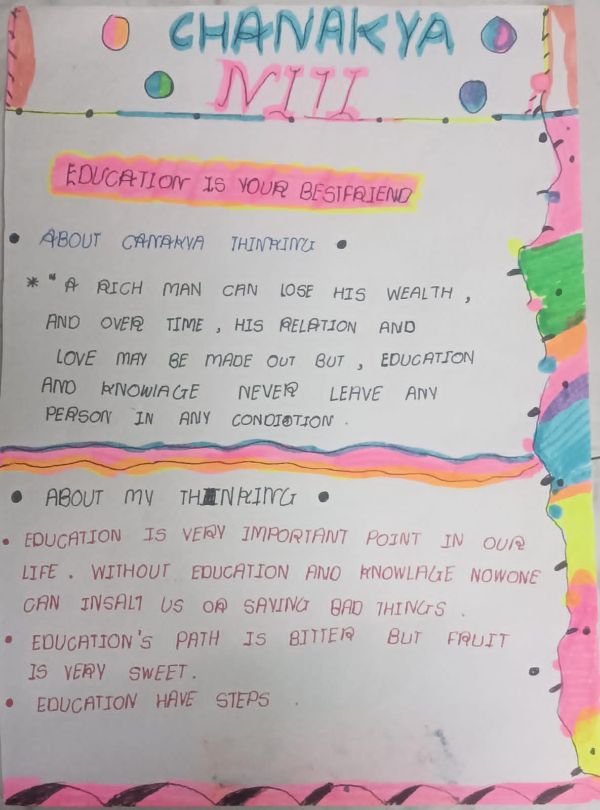 CHANAKYA
NITI
EDUCATION IS YOUR BESTFRIEND
• ABOUT CANAKYA THINKING •
* " A RICH MAN CAN LOSE HIS WEALTH ,
AND OVER TIME , HIS RELATION AND
LOVE MAY BE MADE OUT BUT , EDUCATION
AND KNOWLAGE NEVER LEAVE ANY
PERSON IN ANY CONDIOTION .
• ABOUT MY THINKING •
• EDUCATION IS VERY IMPORTANT POINT IN OUR
LIFE . WITHOUT EDUCATION AND KNOWLAGE NOWONE
CAN INSALT US OR SAYING BAD THINGS .
• EDUCATION'S PATH IS BITTER BUT FRUIT
IS VERY SWEET .
• EDUCATION HAVE STEPS .